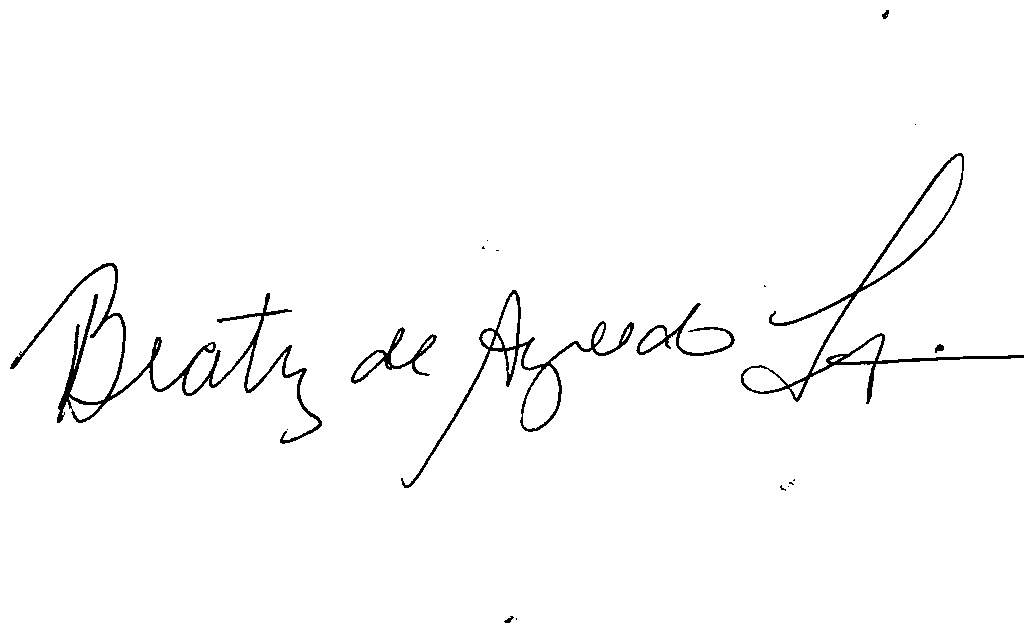 Beatriz de Azeredo